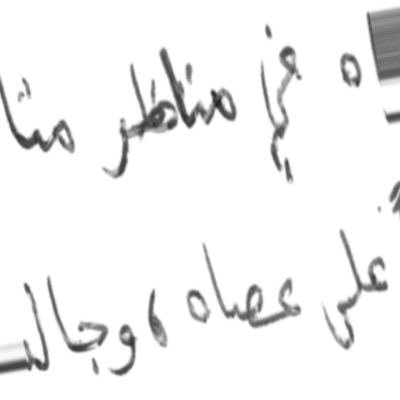 ه في مناظر منا
على عصاه ، وجال